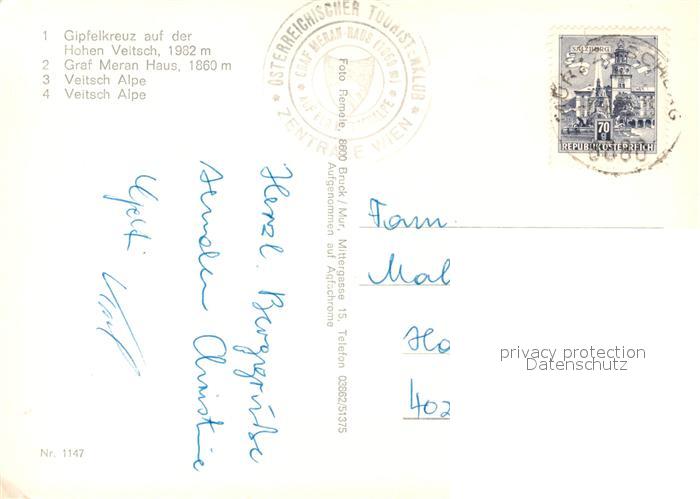 1 Gipfelkreuz auf der
Hohen Veitsch, 1982 m
2 Graf Meran Haus, 1860 m
3 Veitsch Alpe
4 Veitsch Alpe
ÖSTERREICHISCHER TOURISTENKLUB
ZENTRALE WIEN
GRAF MERAN-HAUS (1860 m)
SALZBURG
70
g
REPUBLIK ÖSTERREICH
8680
Foto Remele, 8600 Bruck/Mur, Mittergasse 15, Telefon 03862/51375
Aufgenommen auf Agfachrome
Herzl. Berggrüße
senden Christine
Fam.
Mal
Ho
402
privacy protection
Datenschutz
Nr. 1147